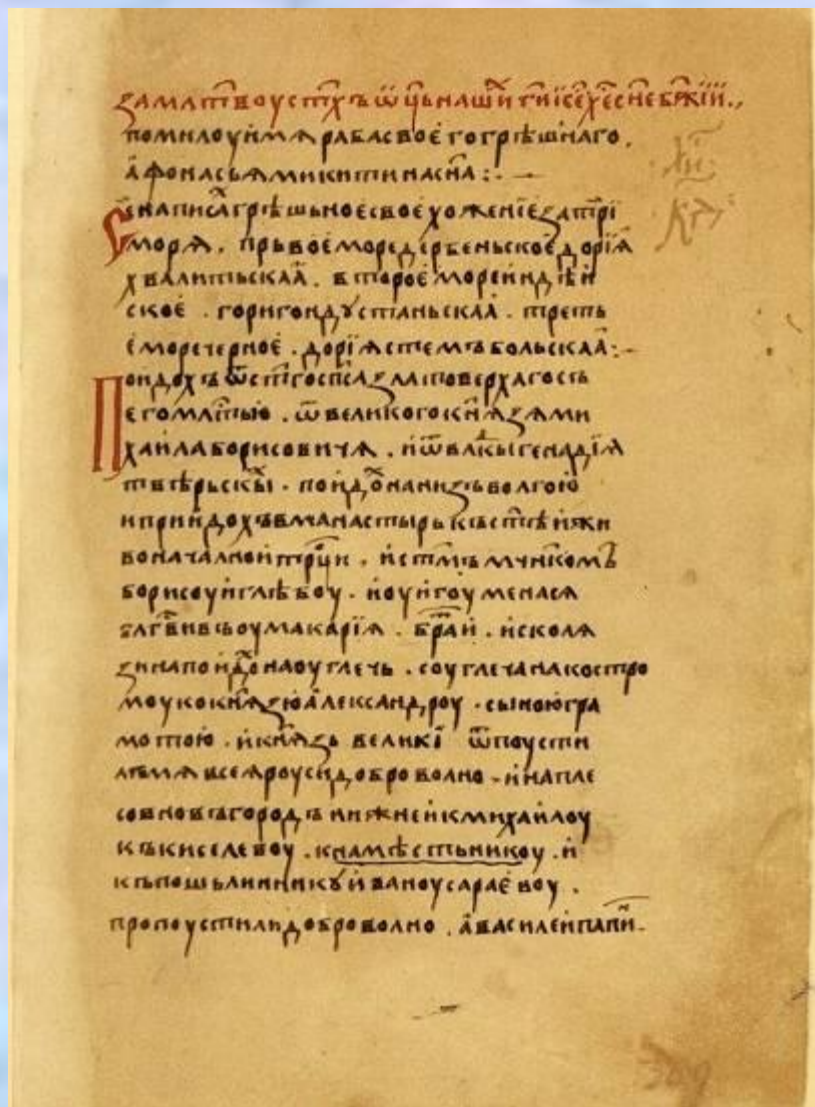 За мл҃твоу ст҃ыхъ ѿц҃ь нашиⷯ г҃и і҃се х҃е сн҃е бж҃їи.,
помилоуй мѧ раба своего грѣшнаго.
афонасьѧ микитина сн҃а :. –
Се написаⷯ грѣшьное свое хоженїе за трї
морѧ. прьвое море дербеньское дорїѧ
хвалитьскаа. второе море индѣй
ское. гори гондѹстаньскаа. треть
е море черное. дорїѧ стемъбольскаа :-
Поидохъ ѿ ст҃го сп҃са златоверхаго сь
его мл҃тью. ѿ великого кн҃ѧзѧ ми
хаила борисовичѧ. и ѿ влⷣкы генадїѧ
твѣрьскыⷯ. поидоⷯ на низъ волгою
и приидохъ в манастырь къ ст҃ѣй жи
воначалной трⷪци. и ст҃мъ мч҃нкомъ
борисоу и глѣбоу. и оу игоумена сѧ
бл҃гвивъ оу макарїѧ. братьи. и с колѧ
зина поидоⷯ на оуглечь. с оуглеча на костро
моу ко кн҃ѧзю александроу. с ыною гра
мотою. и кн҃ѧзь великї ѿпоусти
лъ мѧ всеѧ роуси добровольно. и на пле
со в новъгородъ нижней к михайлоу
къ киселевоу. к намѣстьникоу. и
къ пошьлинникѹ иваноу сараевоу.
пропоустили доброволно. а василей папиⷩ.